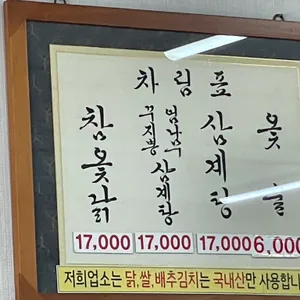 차림표
참옻닭
꾸지뽕
엄나무
삼계탕
삼계탕
옻술
17,000 17,000 17,000 6,000
저희업소는 닭,쌀,배추김치는 국내산만 사용합니